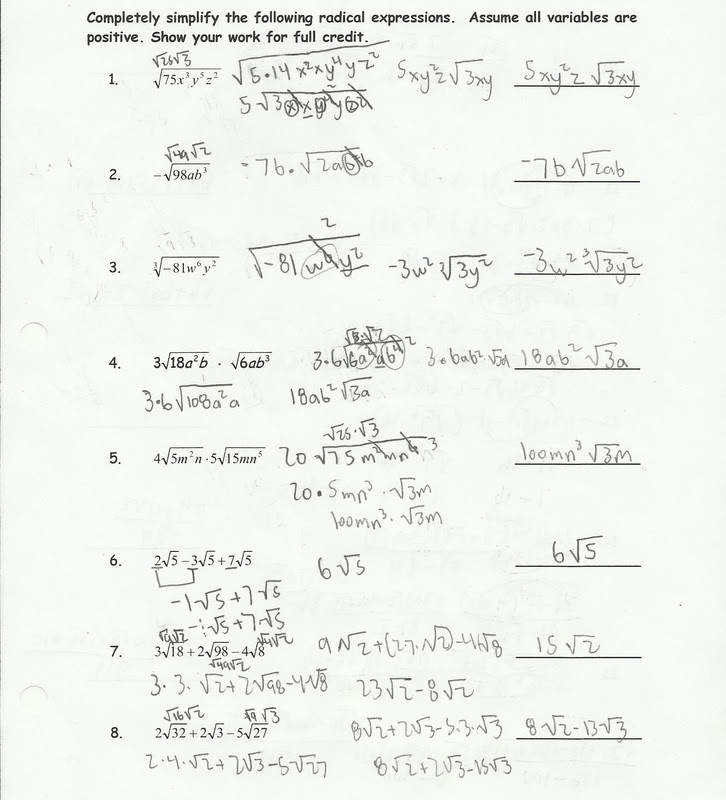 Completely simplify the following radical expressions. Assume all variables are
positive. Show your work for full credit.
√25√3
1. √75x³y⁵z² √5·14x²xy⁴yz² 5xy²z√3xy 5xy²z√3xy
√49√2
2. -√98ab³ -7b·√2ab -7b√2ab
2
3. ∛-81w⁶y² -3w²∛3y² -3w²∛3y²
4. 3√18a²b · √6ab³ 18ab²√3a
3·6√108a²a 18ab²√3a
√25·√3
5. 4√5m²n·5√15mn⁵ 20√75m²mn⁶ 3 100mn³√3m
20·5mn³·√3m
100mn³·√3m
6. 2√5-3√5+7√5 6√5 6√5
-1√5+7√5
-1√5+7√5
√9√2 √4√2
7. 3√18+2√98-4√8 15√2
√49√2
3·3·√2+2√98-4√8 23√2-8√2
√16√2 √9√3
8. 2√32+2√3-5√27 8√2+2√3-5·3·√3 8√2-13√3
2·4·√2+2√3-5√27 8√2+2√3-15√3